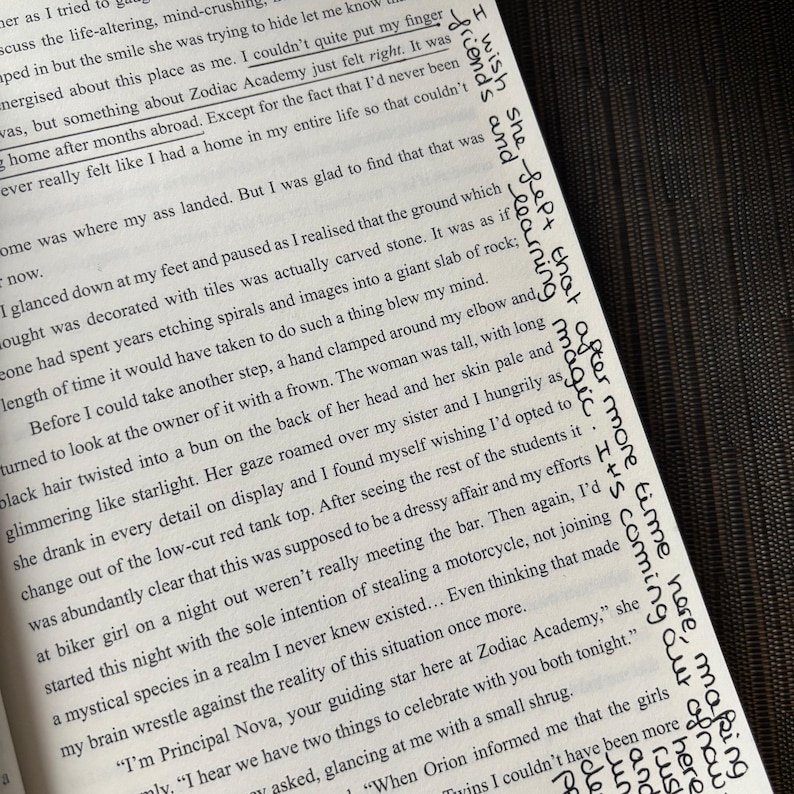 her as I tried to
scuss the life-altering, mind-crushing,
ped in but the smile she was trying to hide let me know
nergised about this place as me. I couldn't quite put my finger
was, but something about Zodiac Academy just felt right. It was
g home after months abroad. Except for the fact that I'd never been
ever really felt like I had a home in my entire life so that couldn't
ome was where my ass landed. But I was glad to find that that was
r now.
I glanced down at my feet and paused as I realised that the ground which
ought was decorated with tiles was actually carved stone. It was as if
eone had spent years etching spirals and images into a giant slab of rock;
length of time it would have taken to do such a thing blew my mind.
Before I could take another step, a hand clamped around my elbow and
turned to look at the owner of it with a frown. The woman was tall, with long
black hair twisted into a bun on the back of her head and her skin pale and
glimmering like starlight. Her gaze roamed over my sister and I hungrily as
she drank in every detail on display and I found myself wishing I'd opted to
change out of the low-cut red tank top. After seeing the rest of the students it
was abundantly clear that this was supposed to be a dressy affair and my efforts
at biker girl on a night out weren't really meeting the bar. Then again, I'd
started this night with the sole intention of stealing a motorcycle, not joining
a mystical species in a realm I never knew existed... Even thinking that made
my brain wrestle against the reality of this situation once more.
"I'm Principal Nova, your guiding star here at Zodiac Academy," she
mly. "I hear we have two things to celebrate with you both tonight."
asked, glancing at me with a small shrug.
"When Orion informed me that the girls
Twins I couldn't have been more
a
I wish she felt that after more time here, making
friends and learning magic. Its coming out of now
here
rush
and